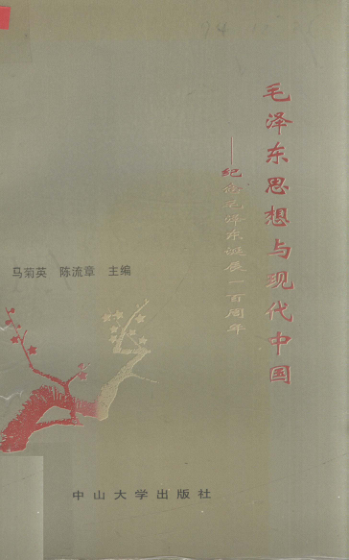 毛泽东思想与现代中国
——纪念毛泽东诞辰一百周年
马菊英 陈流章 主编
中山大学出版社